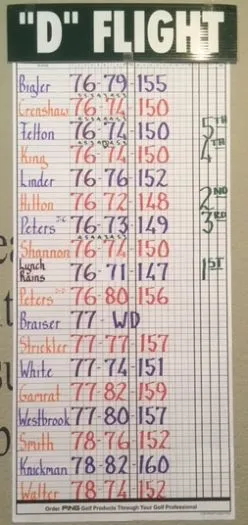 "D" FLIGHT
Bigler 76-79-155
Crenshaw 76-74-150
Felton 76-74-150 5TH
King 76-74-150 4TH
Linder 76-76-152
Hilton 76-72-148 2ND
Peters 76-73-149 3RD
Shannon 76-74-150
Lynch
Rains 76-71-147 1ST
Peters 76-80-156
Braiser 77- WD
Strickler 77-77-157
White 77-74-151
Gamrat 77-82-159
Westbrook 77-80-157
Smith 78-76-152
Knickman 78-82-160
Walter 78-74-152
Order PING Golf Products Through Your Golf Professional